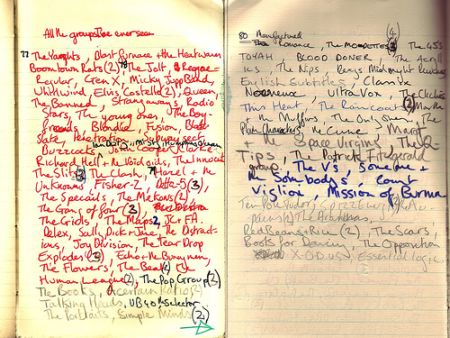 All the groups I've ever seen
77 The Yachts, Blast Furnace + the Heatwaves
Boomtown Rats (2), 78 The Jolt, Reggae
Regular, Gen X, Micky Jupp Band,
Whirlwind, Elvis Costello (2), Queen,
The Banned, Strangeways, Radio
Stars, The young ones, The Boy-
friends, Blondie, Fusion, Black
Slate, Penetration,
Buzzcocks, John Cooper Clarke,
Richard Hell + the Voidoids, The Innocent
The Slits, The Clash, 79 + the
Unknowns, Fisher-Z, Delta-5 (3),
The Specials, The Mekons (2)
The Gang of Four (3),
The Grids, The Maps 2,
Delex, Sally, Dick + Jane, the Distract-
ions, Joy Division, The Tear Drop
Explodes (3), Echo + the Bunnymen,
The Flowers, The Beat, The
Human League (2), The Pop Group (3)
The Books, A certain Ratio (2)
Talking Heads, UB40, Selecter,
The Portraits, Simple Minds (2)
80 Manufactured (4)
Romance, The Mo-dettes, The 45s
TOYAH BLOOD DONER, The
The Nips, Dexys Midnight Runners
English Subtitles, Classix
Nouveaux, Ultra Vox, The
This Heat, The Raincoats (2), Martha
+ the Muffins, The Only Ones, The
Characters, The Cure,
+ The Space Virgins, The Q-
Tips, The Patrick Fitzgerald
group, The V's, Someone +
the Somebodys, Count
Viglion, Mission of Burma
Ten Pole Tudor,
Red Beans + Rice (2), The Scars,
Books for Dancing, The Opposition
X-O-DUS, Essential logic